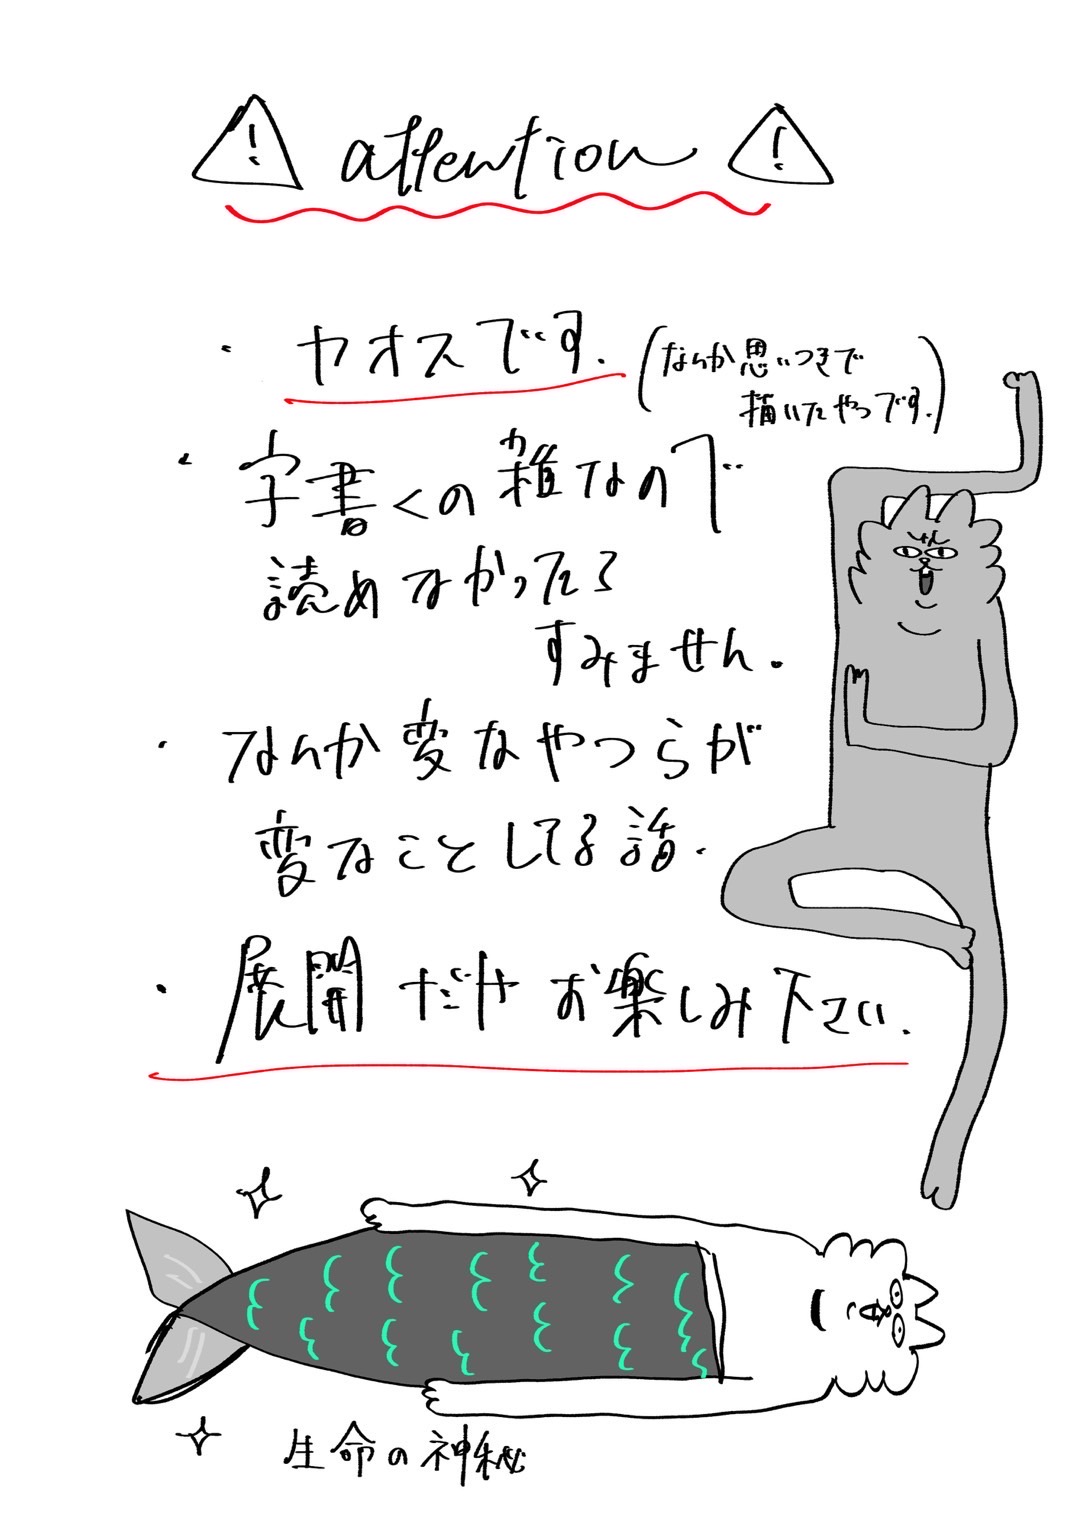 attention
・カオスです.
(なんか思いつきで
描いたやつです.)
・字書くの雑なので
読めなかったら
すみません.
・なんか変なやつらが
変なことしてる話.
・展開だけお楽しみ下さい.
生命の神秘